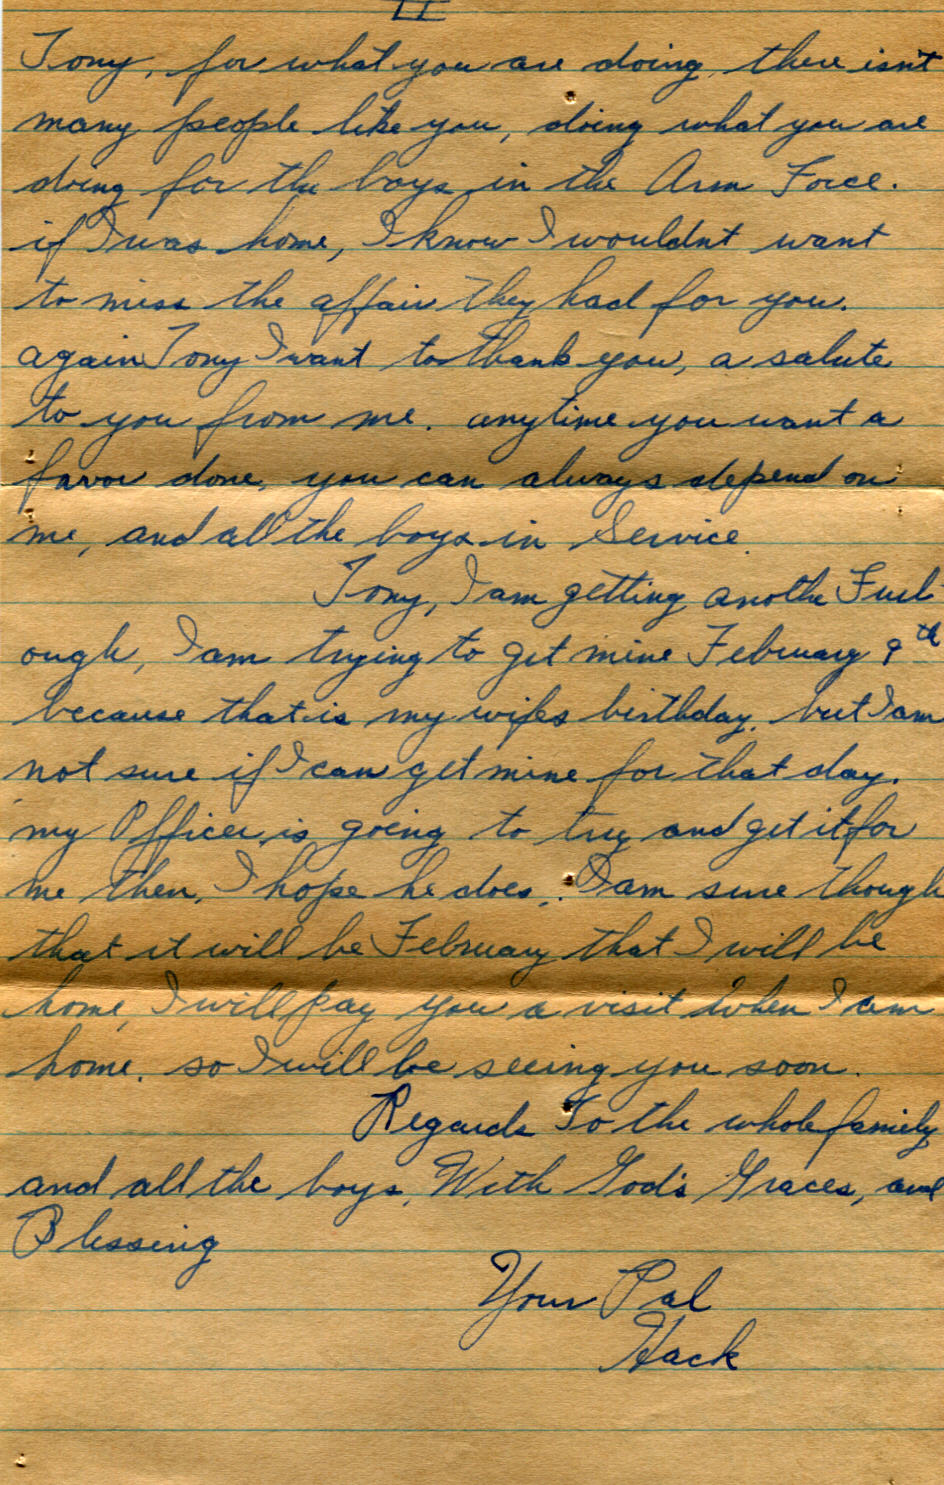 II
Tony, for what you are doing, there isn't
many people like you, doing what you are
doing for the boys in the Arm Force.
if I was home, I know I wouldnt want
to miss the affair they had for you.
again Tony I want to thank you, a salute
to you from me. anytime you want a
favor done, you can always depend on
me, and all the boys in Service
Tony, I am getting anothe Furl-
ough, I am trying to get mine February 9th
because that is my wifes birthday. but I am
not sure if I can get mine for that day.
my Officer is going to try and get it for
me then, I hope he does, I am sure though
that it will be February that I will be
home, I will pay you a visit when I am
home. so I will be seeing you soon.
Regards To the whole family
and all the boys, With God's Graces, and
Blessing
Your Pal
Hack